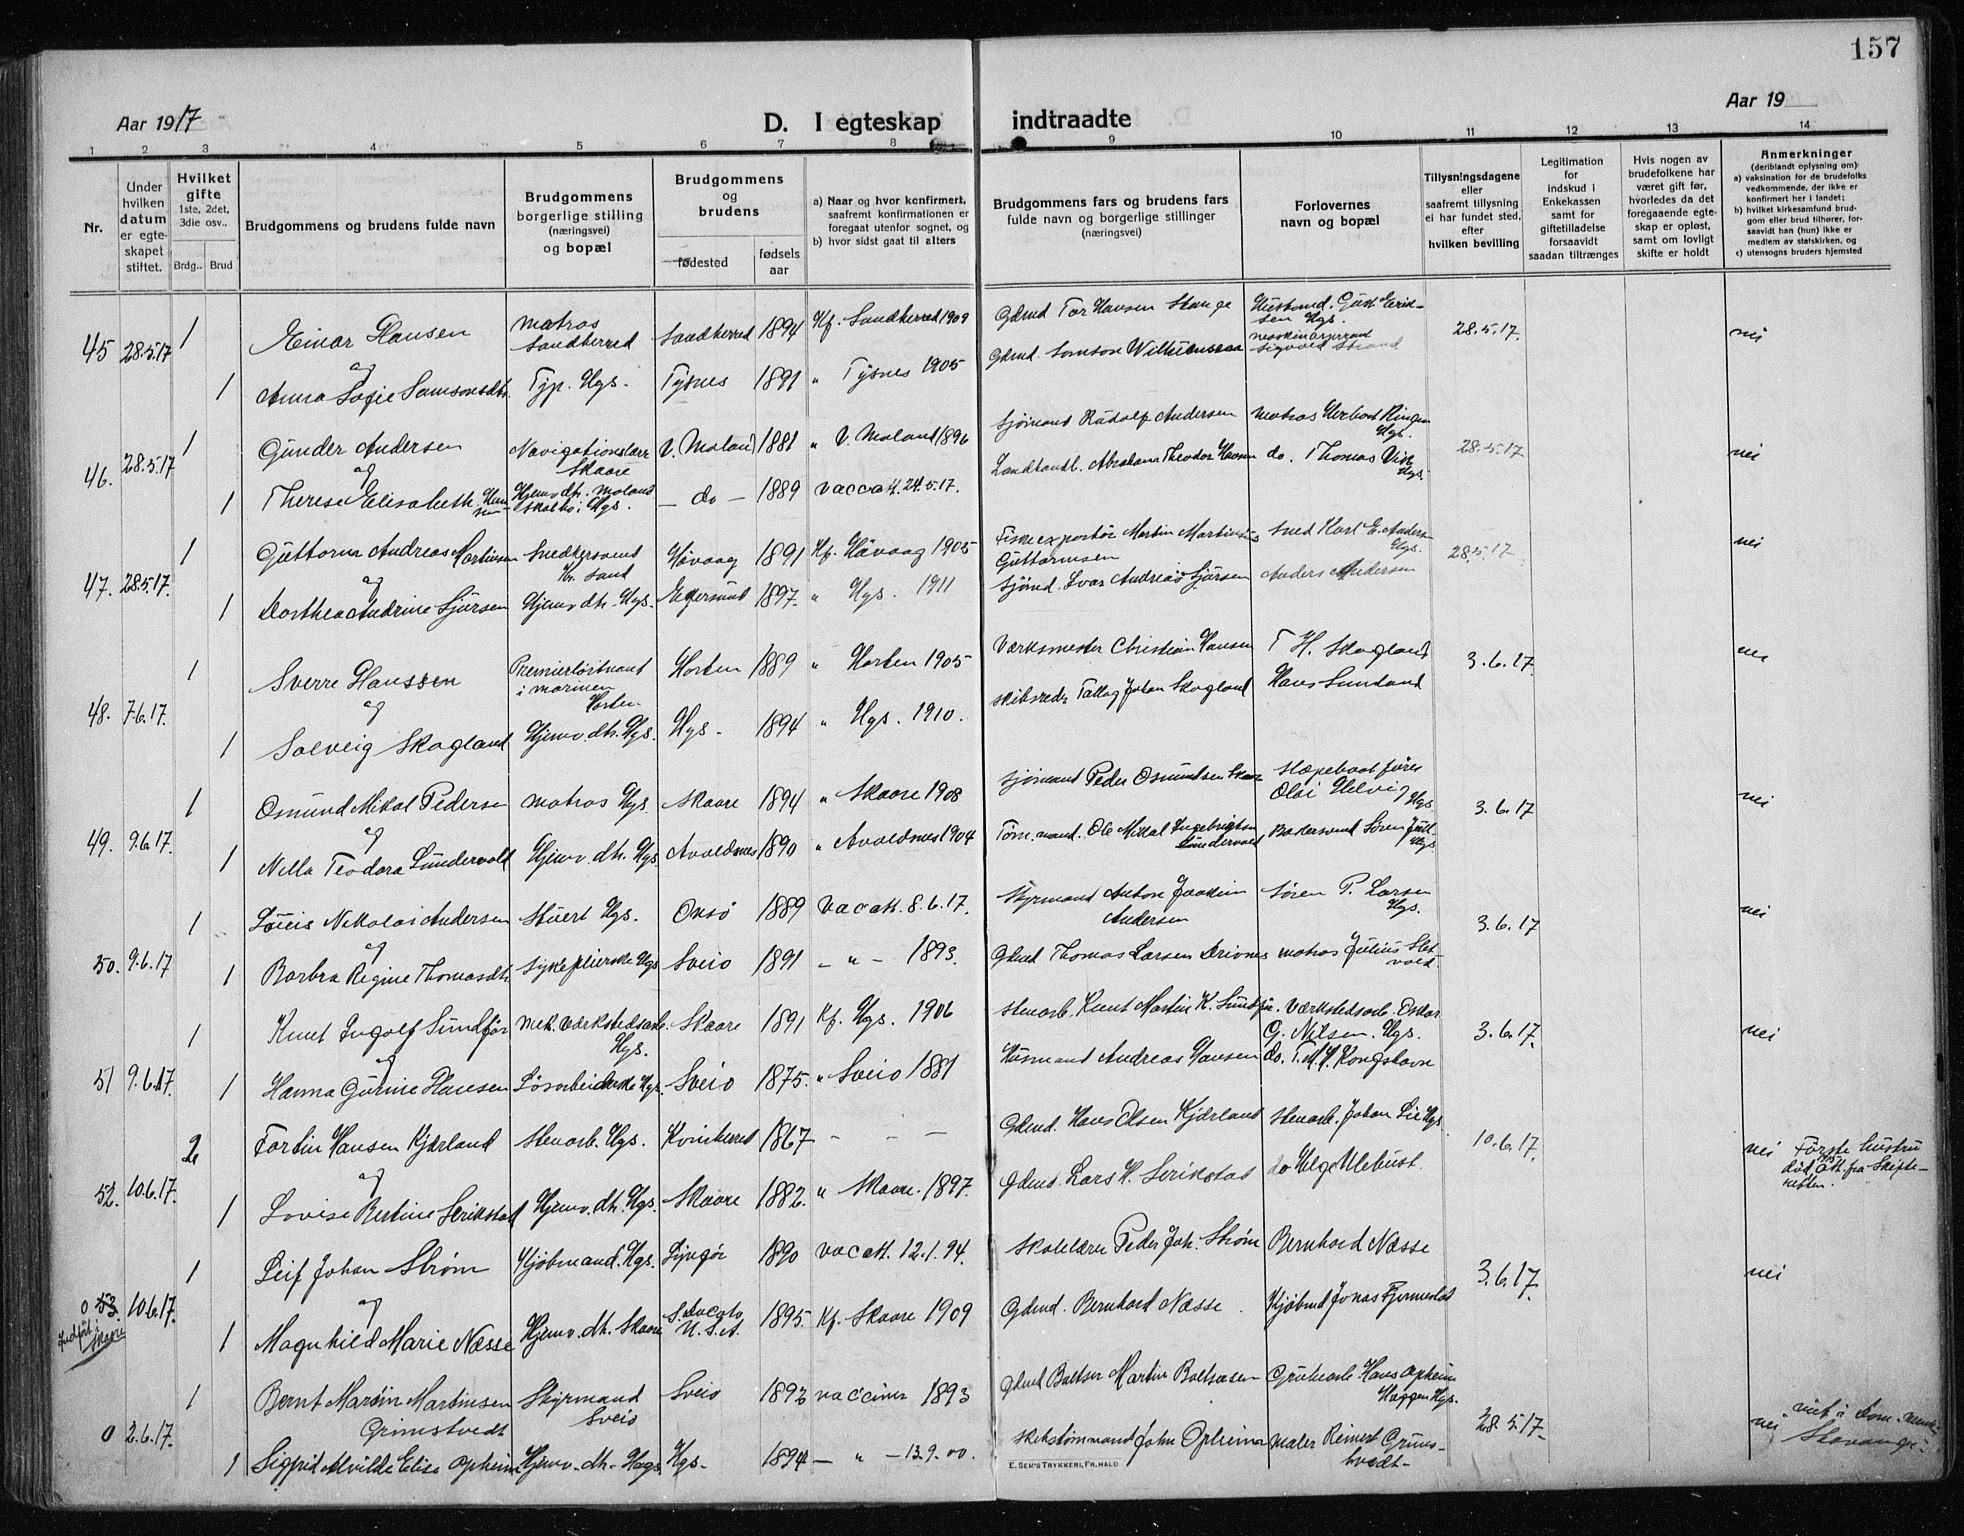 157
Aar 1917
D. I egteskap indtraadte
Aar 19
1 2 3 4 5 6 7 8 9 10 11 12 13 14
Nr.
Under hvilken datum er egteskapet stiftet.
Hvilket gifte
1ste, 2det, 3die osv..
Brdg.. Brud
Brudgommens og brudens fulde navn
Brudgommens borgerlige stilling (næringsvei) og bopæl
Brudgommens og brudens
fødested
fødsels aar
a) Naar og hvor konfirmert, saafremt konfirmationen er foregaat utenfor sognet, og
b) hvor sidst gaat til alters
Brudgommens fars og brudens fars fulde navn og borgerlige stillinger (næringsvei)
Forlovernes navn og bopæl
Tillysningsdagene eller saafremt tillysning ei har fundet sted, efter hvilken bevilling
Legitimation for indskud i Enkekassen samt for giftetilladelse forsaavidt saadan tiltrænges
Hvis nogen av brudefolkene har været gift før, hvorledes da det foregaaende egteskap er opløst, samt om lovligt skifte er holdt
Anmerkninger
(deriblandt oplysning om):
a) vaksination for de brudefolks vedkommende, der ikke er konfirmert her i landet;
b) hvilket kirkesamfund brudgom eller brud tilhører, forsaavidt han (hun) ikke er medlem av statskirken, og
c) utensogns bruders hjemsted
45 28.5.17 1 Einar Hansen matros Sandherred Sandherred 1894 Kf. Sandherred 1909 Gdmd Tor Hansen Stange 28.5.17. nei
og
1 Anna Sofie Samsonsdtr. Hgs. Tysnes 1891 " Tysnes 1905 Sigvald Strand
46. 28.5.17 1 Gunder Andersen Skaare V. Moland 1881 " V. Moland 1896 Sjømand Rudolf Andersen matros Hgs. 28.5.17 nei
og
1 Therese Elisabeth Hansen Hjemv. dtr. Moland Hgs. — do — 1889 vacc att. 24.5.17. Landhandl. Abraham Theodor Hansen do. Thomas Hgs.
47. 28.5.17. 1 Guttorm Andreas Martinsen Snedkersvend Kr. sand Høvaag 1891 Kf. Høvaag 1905 Fiskeexportør Martin Guttormsen Hgs. 28.5.17. nei
og
1 Dorthea Andrine Sjursen Hjemv. dtr. Hgs. Egersund 1897. " Hgs. 1911 Sjømd. Ivar Andreas Sjursen Anders Andersen
48. 7.6.17. 1 Sverre Hanssen Premierløitnant i marinen Horten Horten 1889 " Horten 1905 Værksmester Christian Hansen T. H. Skogland 3.6.17. nei
og
1 Solveig Skogland Hjemv. dtr. Hgs. Hgs. 1894 " Hgs. 1910. Skibsreder Tallag Johan Skogland Hans Sundand
49. 9.6.17. 1 Osmund Mikal Pedersen matros Hgs. Skaare 1894 " Skaare 1908 Sjømand Peder Osmundsen Skaare Slæpebaatfører Olai Helvig Hgs. 3.6.17 nei
og
1 Nella Teodora Sundervold Hjemv. dtr. Hgs. Avaldsnes 1890 " Avaldsnes 1904 Tømmermand. Ole Mikal Ingebrigtsen Sundervold Søren Juul Hgs.
50. 9.6.17 1 Louis Nikolai Andersen Stuert Hgs. Onsø 1889 vac att. 8.6.17. Styrmand Anton Joakim Andersen Søren P. Larsen Hgs. 3.6.17 nei
og
1 Barbra Regine Thomasdtr. Sykepleierske Hgs Sveio 1891 — " — 1893. Gdmd Thomas Larsen matros Julius Sletvold
51 9.6.17. 1 Knut Ingolf Sundfør mek. værkstedsarb. Hgs. Skaare 1891 Kf. Hgs. 1906 Stenarb. Knut Martin K. Sundfør. Værkstedsarb. Oskar G. Nilsen. Hgs. 3.6.17. nei
og
1 Hanna Gurine Hansen Løsarbeiderske Hgs. Sveio 1875. " Sveio 1881 Husmand Andreas Hansen do. T. M. H. Kongshavn
52. 10.6.17. 2 Torbin Hansen Kjærland Stenarb. Hgs. Kvinherred 1867 — — — Gdmd. Hans Olsen Kjærland Stenarb. Johan Lie Hgs. 10.6.17. nei Første hustru død att. fra Skifteretten.
og
1 Lovise Bertine Serikstad Hjemv. dtr. Hgs. Skaare 1882. " Skaare. 1897. Gdmd. Lars H. Serikstad do Helge Ulehust.
0 53. 10.6.17. 1 Leif Johan Strøm Kjøbmand. Hgs. Lyngør 1890 vac att. 12.1.94. Skolelærer Peder Joh. Strøm Bernhard Næsse 3.6.17. nei
Indført i Skaare
og
1 Magnhild Marie Næsse Hjemv. dtr. Skaare S. Dacota U.S.A. 1895. Kf. Skaare 1909 Gdmd. Bernhard Næsse Kjøbmd Jonas Fjermestad
0 2.6.17. 1 Bernt Martin Martinsen Grimstvedt Styrmand Sveio Sveio 1893 vacciner 1893 Gdmd Baltser Martin Baltsersen Hans Opheim Hgs. 28.5.17. nei viet i Stavanger
1 Sigfrid Alvilde Elise Opheim Hjemv. dtr. Hgs. Hgs. 1894 — " — 13.9.00. Skibstømmand John Opheim maler Reinert Grimstvedt
E. SEM'S TRYKKERI, FR.HALD